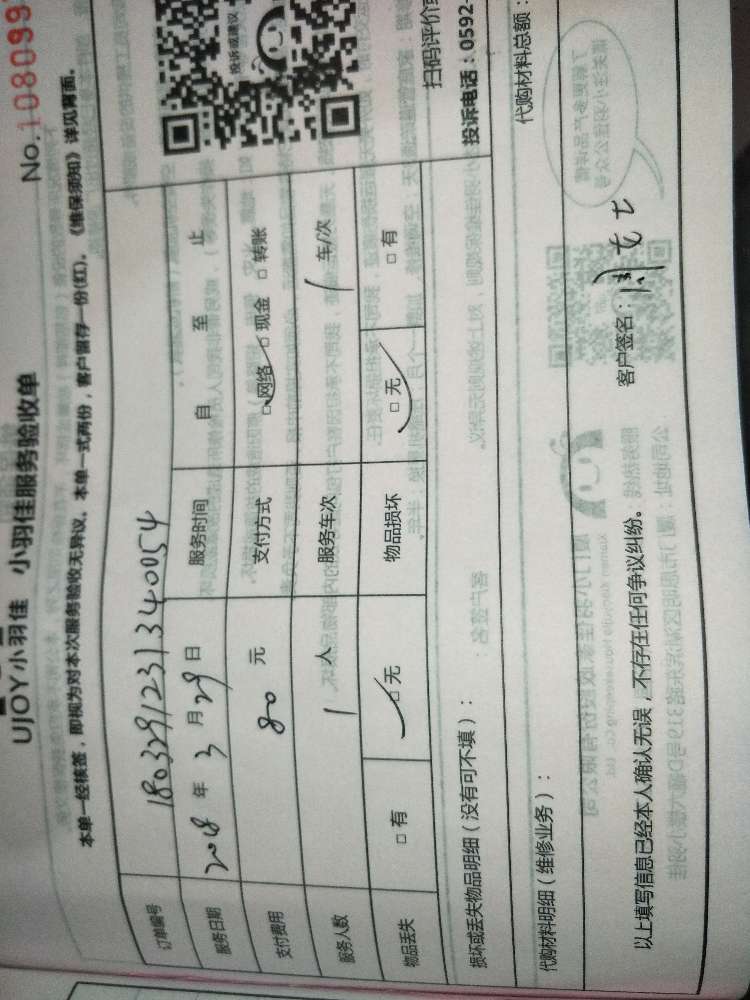 No.108099
UJOY小羽佳 小羽佳服务验收单
本单一经核签，即视为对本次服务验收无异议。本单一式两份，客户留存一份(红)。《维保须知》详见背面。
投诉或建议
扫码评价
投诉电话：0592-
订单编号 1803291231340054
服务日期 2018 年 3 月 29 日 服务时间 自 至 止
支付费用 80 元 支付方式 □网络 □现金 □转账
服务人数 1 人 服务车次 1 车/次
物品丢失 □有 □无 物品损坏 □无 □有
损坏或丢失物品明细（没有可不填）：
代购材料明细（维修业务）： 代购材料总额：
以上填写信息已经本人确认无误，不存在任何争议纠纷。 客户签名：